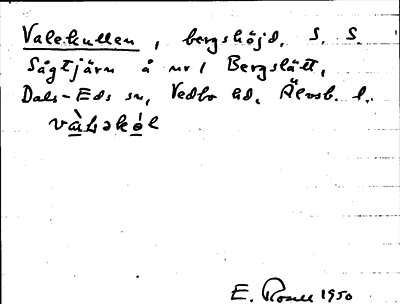 Valekullen, bergshöjd, S. S.
Sågtjärn å nr 1 Bergslätt,
Dals-Eds sn, Vedbo hd, Älvsb. l.
E. 1950